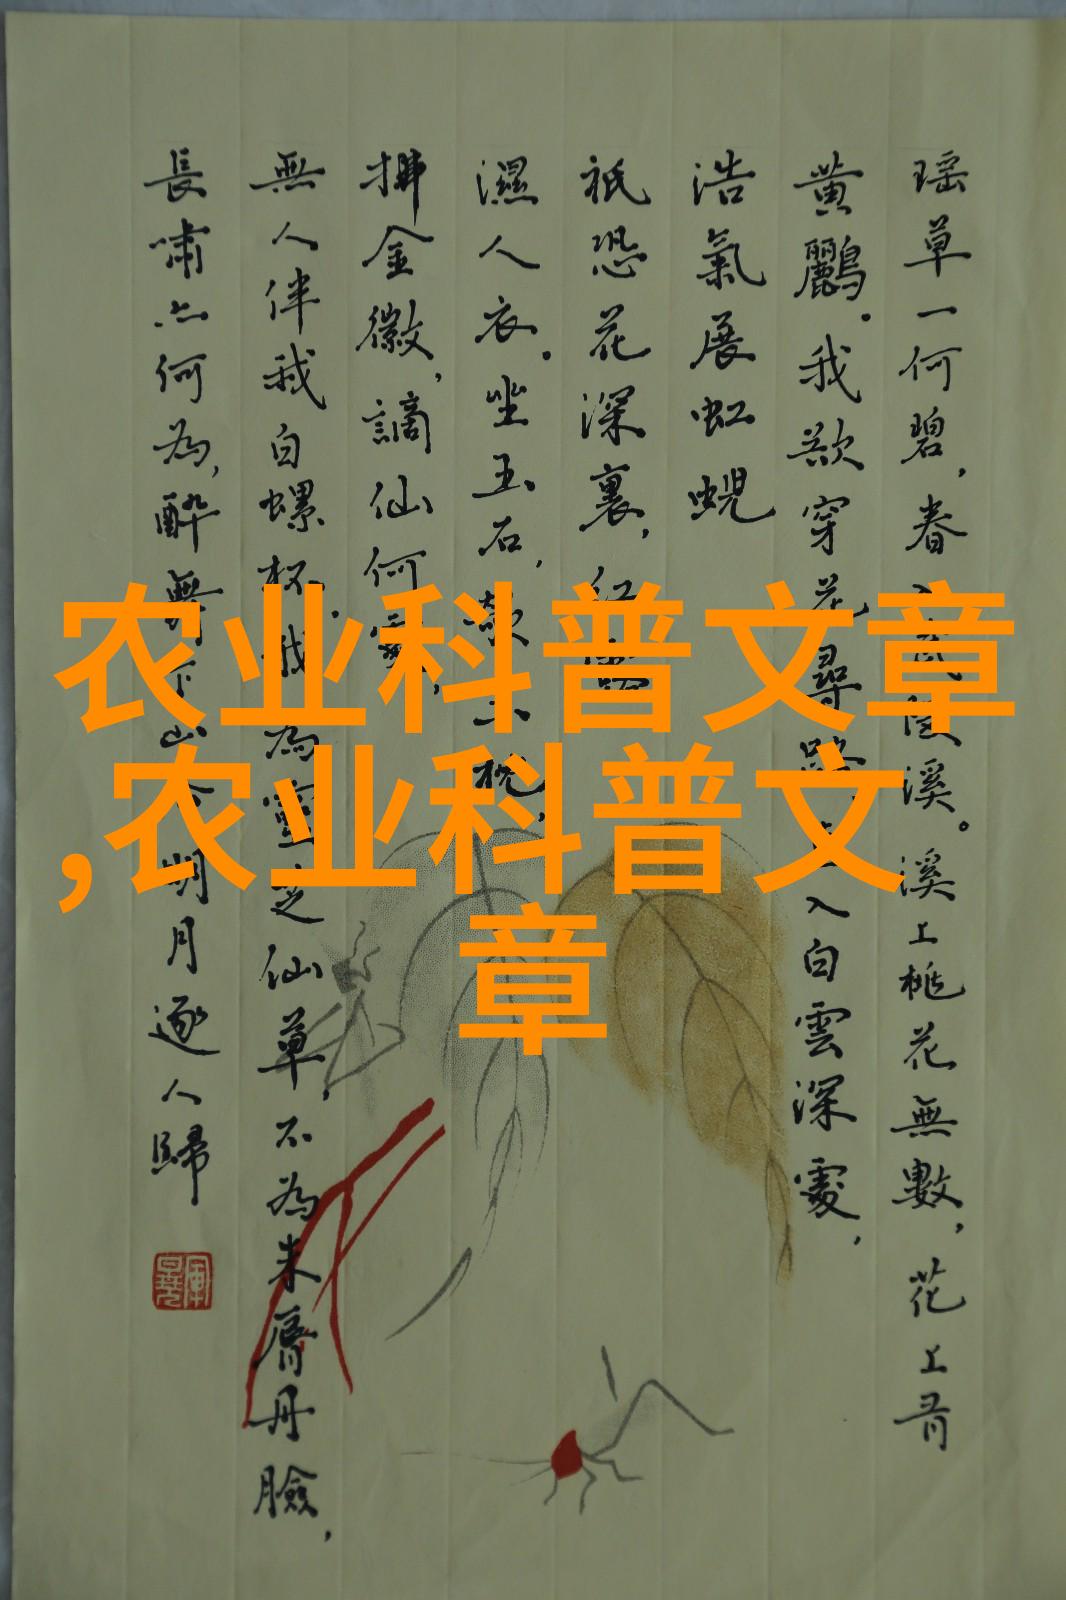 瑶草一何碧，春溪。溪上桃花無數，花上有
黄鸝。我欲穿花尋入白雲深處，
浩氣展虹蜺
祇恐花深裏，紅
濕人衣。坐玉石，枕，
拂金徽，謫仙何
無人伴我白螺杯，我為靈芝仙草，不為朱唇丹臉，
長嘯亦何為，醉舞下山明月逐人歸
农业科普文章
,农业科普文
章